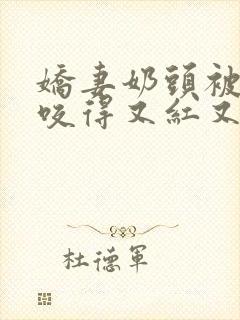 嬌妻奶頭被
咬得又紅又
杜德軍